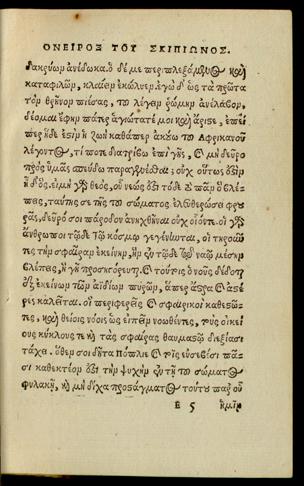 ΟΝΕΙΡΟΣ ΤΟΥ ΣΚΙΠΙΩΝΟΣ.
δακρύων ἀνέδωκα. ὁ δέ με περιπλεξάμενος καὶ
καταφιλῶν, κλαίειν ἐκώλυεν. ἐγὼ δ' ὡς τὰ πρῶτα
τὸν θρῆνον πιέσας, τοῦ λέγειν ῥώμην ἀνέλαβον,
δέομαι ἔφην πάτερ ἁγιώτατέ μοι καὶ ἄριστε, ἐπεί
περ ἥδε ἐστὶν ἡ ζωὴ καθάπερ ἀκούω τοῦ Ἀφρικανοῦ
λέγοντος, τί ποτε διατρίβω ἐπὶ γῆς, καὶ μὴ δεῦρο
πρὸς ὑμᾶς σπεύδω παραγενέσθαι; οὐχ οὕτως ἔστιν
ἡ δ' ὃς. εἰ μὴ γὰρ θεὸς, οὗ νεώς ἐστι τόδε τὸ πᾶν ὃ βλέ
πεις, ταύτης σε τῆς τοῦ σώματος ἐλευθερώσει φρου
ρᾶς, δεῦρό σοι πάροδον ἀνηχθῆναι οὐχ οἷόντε. οἱ γὰρ
ἄνθρωποι τῷδε τῷ κόσμῳ γεγένηνται, οἱ τηροῖεν
τε τὴν σφαῖραν ἐκείνην, ἣν ἐν τῷδε τῷ ναῷ μέσην
βλέπεις, ἣ γῆ προσηγόρευται. καὶ τούτοις ὁ νοῦς δέδοται
ἐξ ἐκείνων τῶν ἀϊδίων πυρῶν, ἅπερ ἄστρα καὶ ἀστέ
ρες καλεῖται. οἱ περιφερεῖς καὶ σφαιρικοὶ καθεστῶ-
τες, καὶ θείοις νόοις ὡς εἰπεῖν νοωθέντες, τοὺς οἰκεί
ους κύκλους τε καὶ τὰς σφαίρας θαυμαστῷ διεξίασι
τάχει. ὅθεν σοι δῆτα Πόπλιε καὶ τοῖς εὐσεβέσι πᾶ-
σι καθεκτέον ἐστὶ τὴν ψυχὴν ἐν τῇ τοῦ σώματος
φυλακῇ, καὶ μὴ δίχα προστάγματος τούτου παρ' οὗ
E 5 ἡμῖν